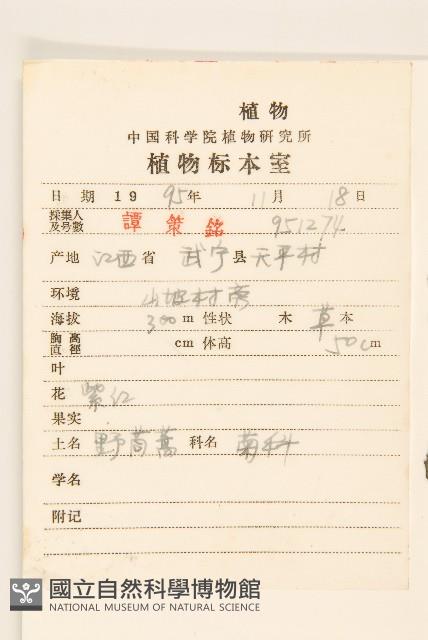 植物
中国科学院植物研究所
植物标本室
日期 1995年 11月 18日
採集人及号數 譚策銘 951274
产地 江西省 武宁县 天平村
环境 山坡村旁
海拔 300 m 性状 木 草本
胸高直徑 cm 体高 50cm
叶
花 紫红
果实
土名 野茼蒿 科名 菊科
学名
附记
國立自然科學博物館
NATIONAL MUSEUM OF NATURAL SCIENCE